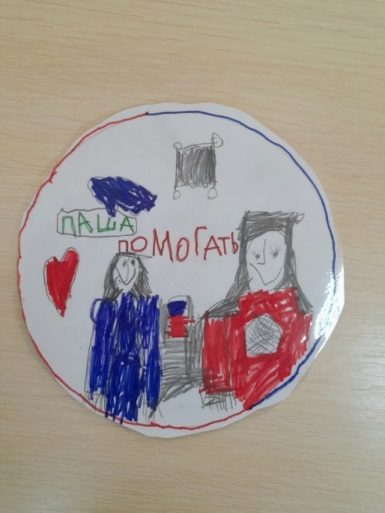 ПАША
ПОМОГАТЬ